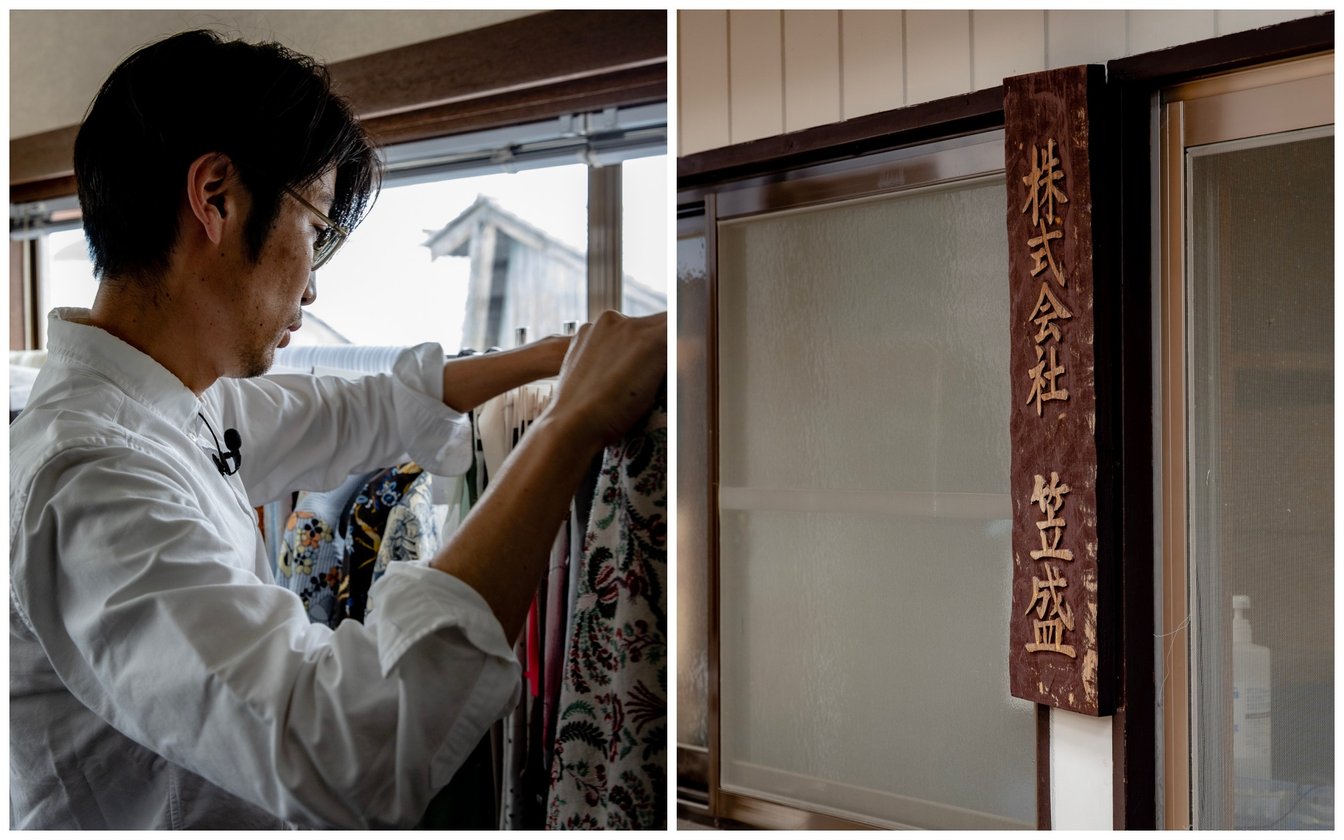 株式会社 笠盛